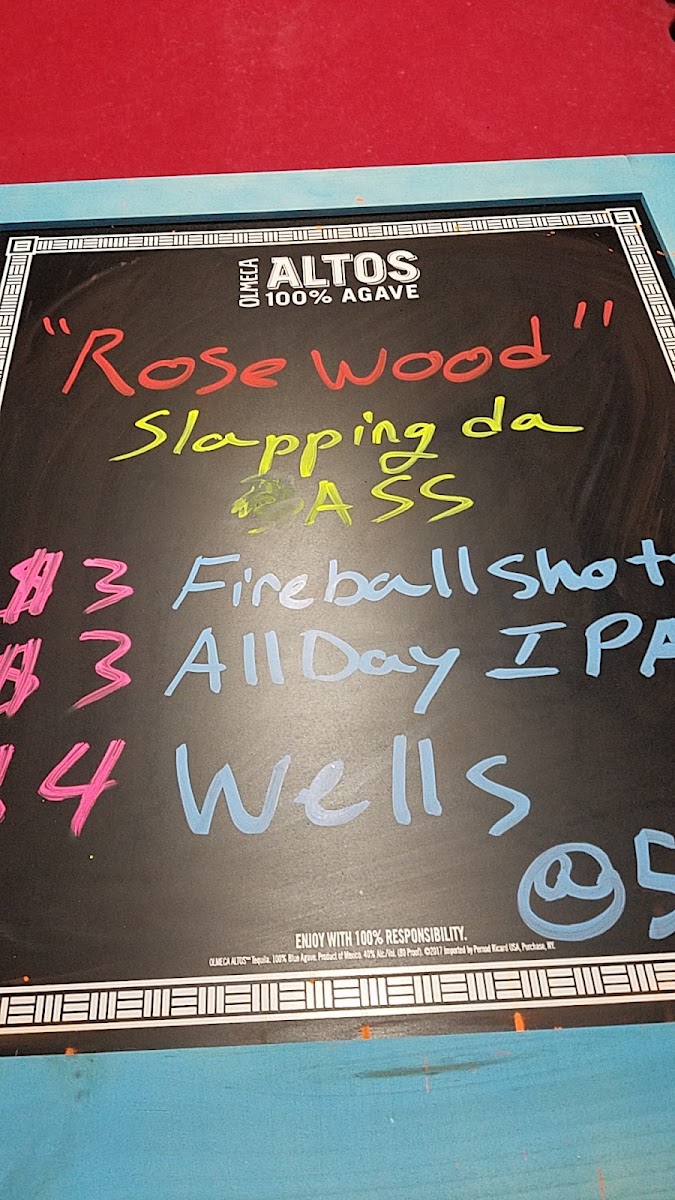 OLMECA ALTOS
100% AGAVE
"Rosewood"
Slapping da
ASS
$3 Fireball Shot
$3 All Day IPA
$4 Wells
@5
ENJOY WITH 100% RESPONSIBILITY.
OLMECA ALTOS™ Tequila. 100% Blue Agave. Product of Mexico. 40% Alc./Vol. (80 Proof). ©2017 Imported by Pernod Ricard USA, Purchase, NY.